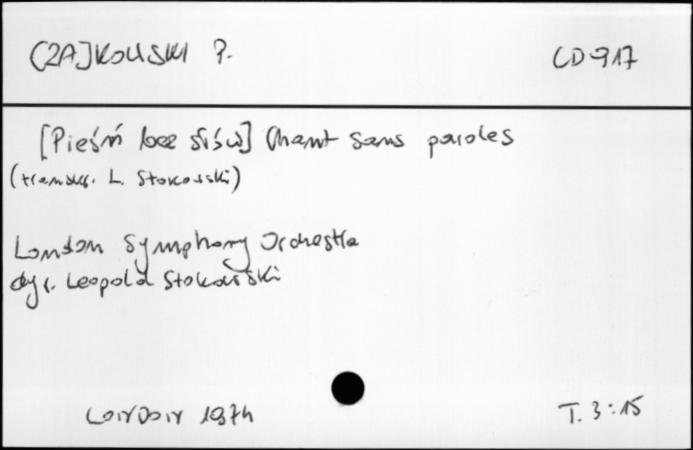 CZAJKOWSKI P.
CD 917
[Pieśń bez słów] Chant sans paroles
(transkr. L. Stokowski)
London Symphony Orchestra
dyr. Leopold Stokowski
LONDON 1974
T. 3:15